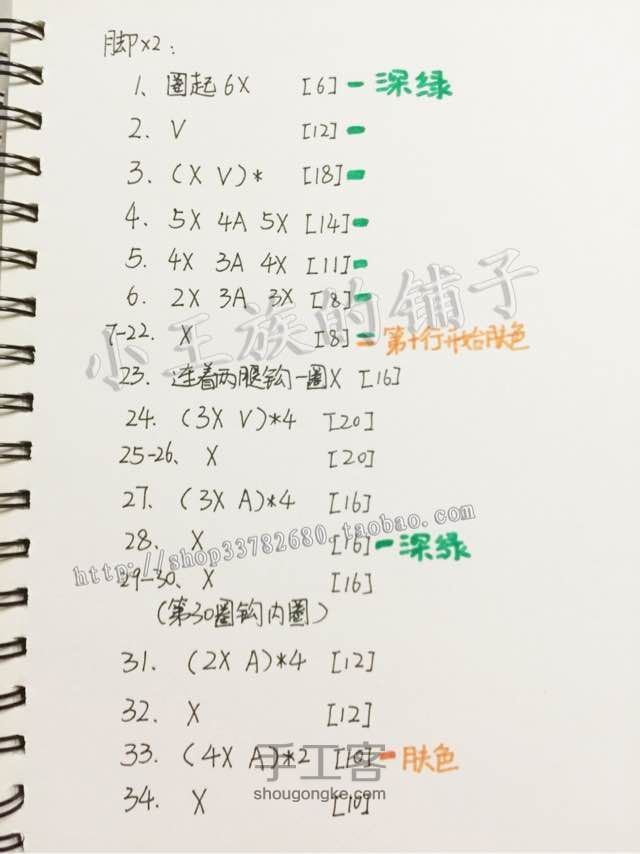 脚×2:
1、圈起6X [6] - 深绿
2. V [12] -
3. (X V)* [18] -
4. 5X 4A 5X [14] -
5. 4X 3A 4X [11] -
6. 2X 3A 3X [8] -
小王族的铺子
7-22. X [8] - 第十行开始肤色
23. 连着两腿钩一圈X [16]
24. (3X V)*4 [20]
25-26、X [20]
27. (3X A)*4 [16]
28. X [16] - 深绿
http://shop33782680.taobao.com
29-30、X [16]
(第30圈钩内圈)
31. (2X A)*4 [12]
32. X [12]
33. (4X A)*2 [10] - 肤色
手工客
34. X [10]
shougongke.com